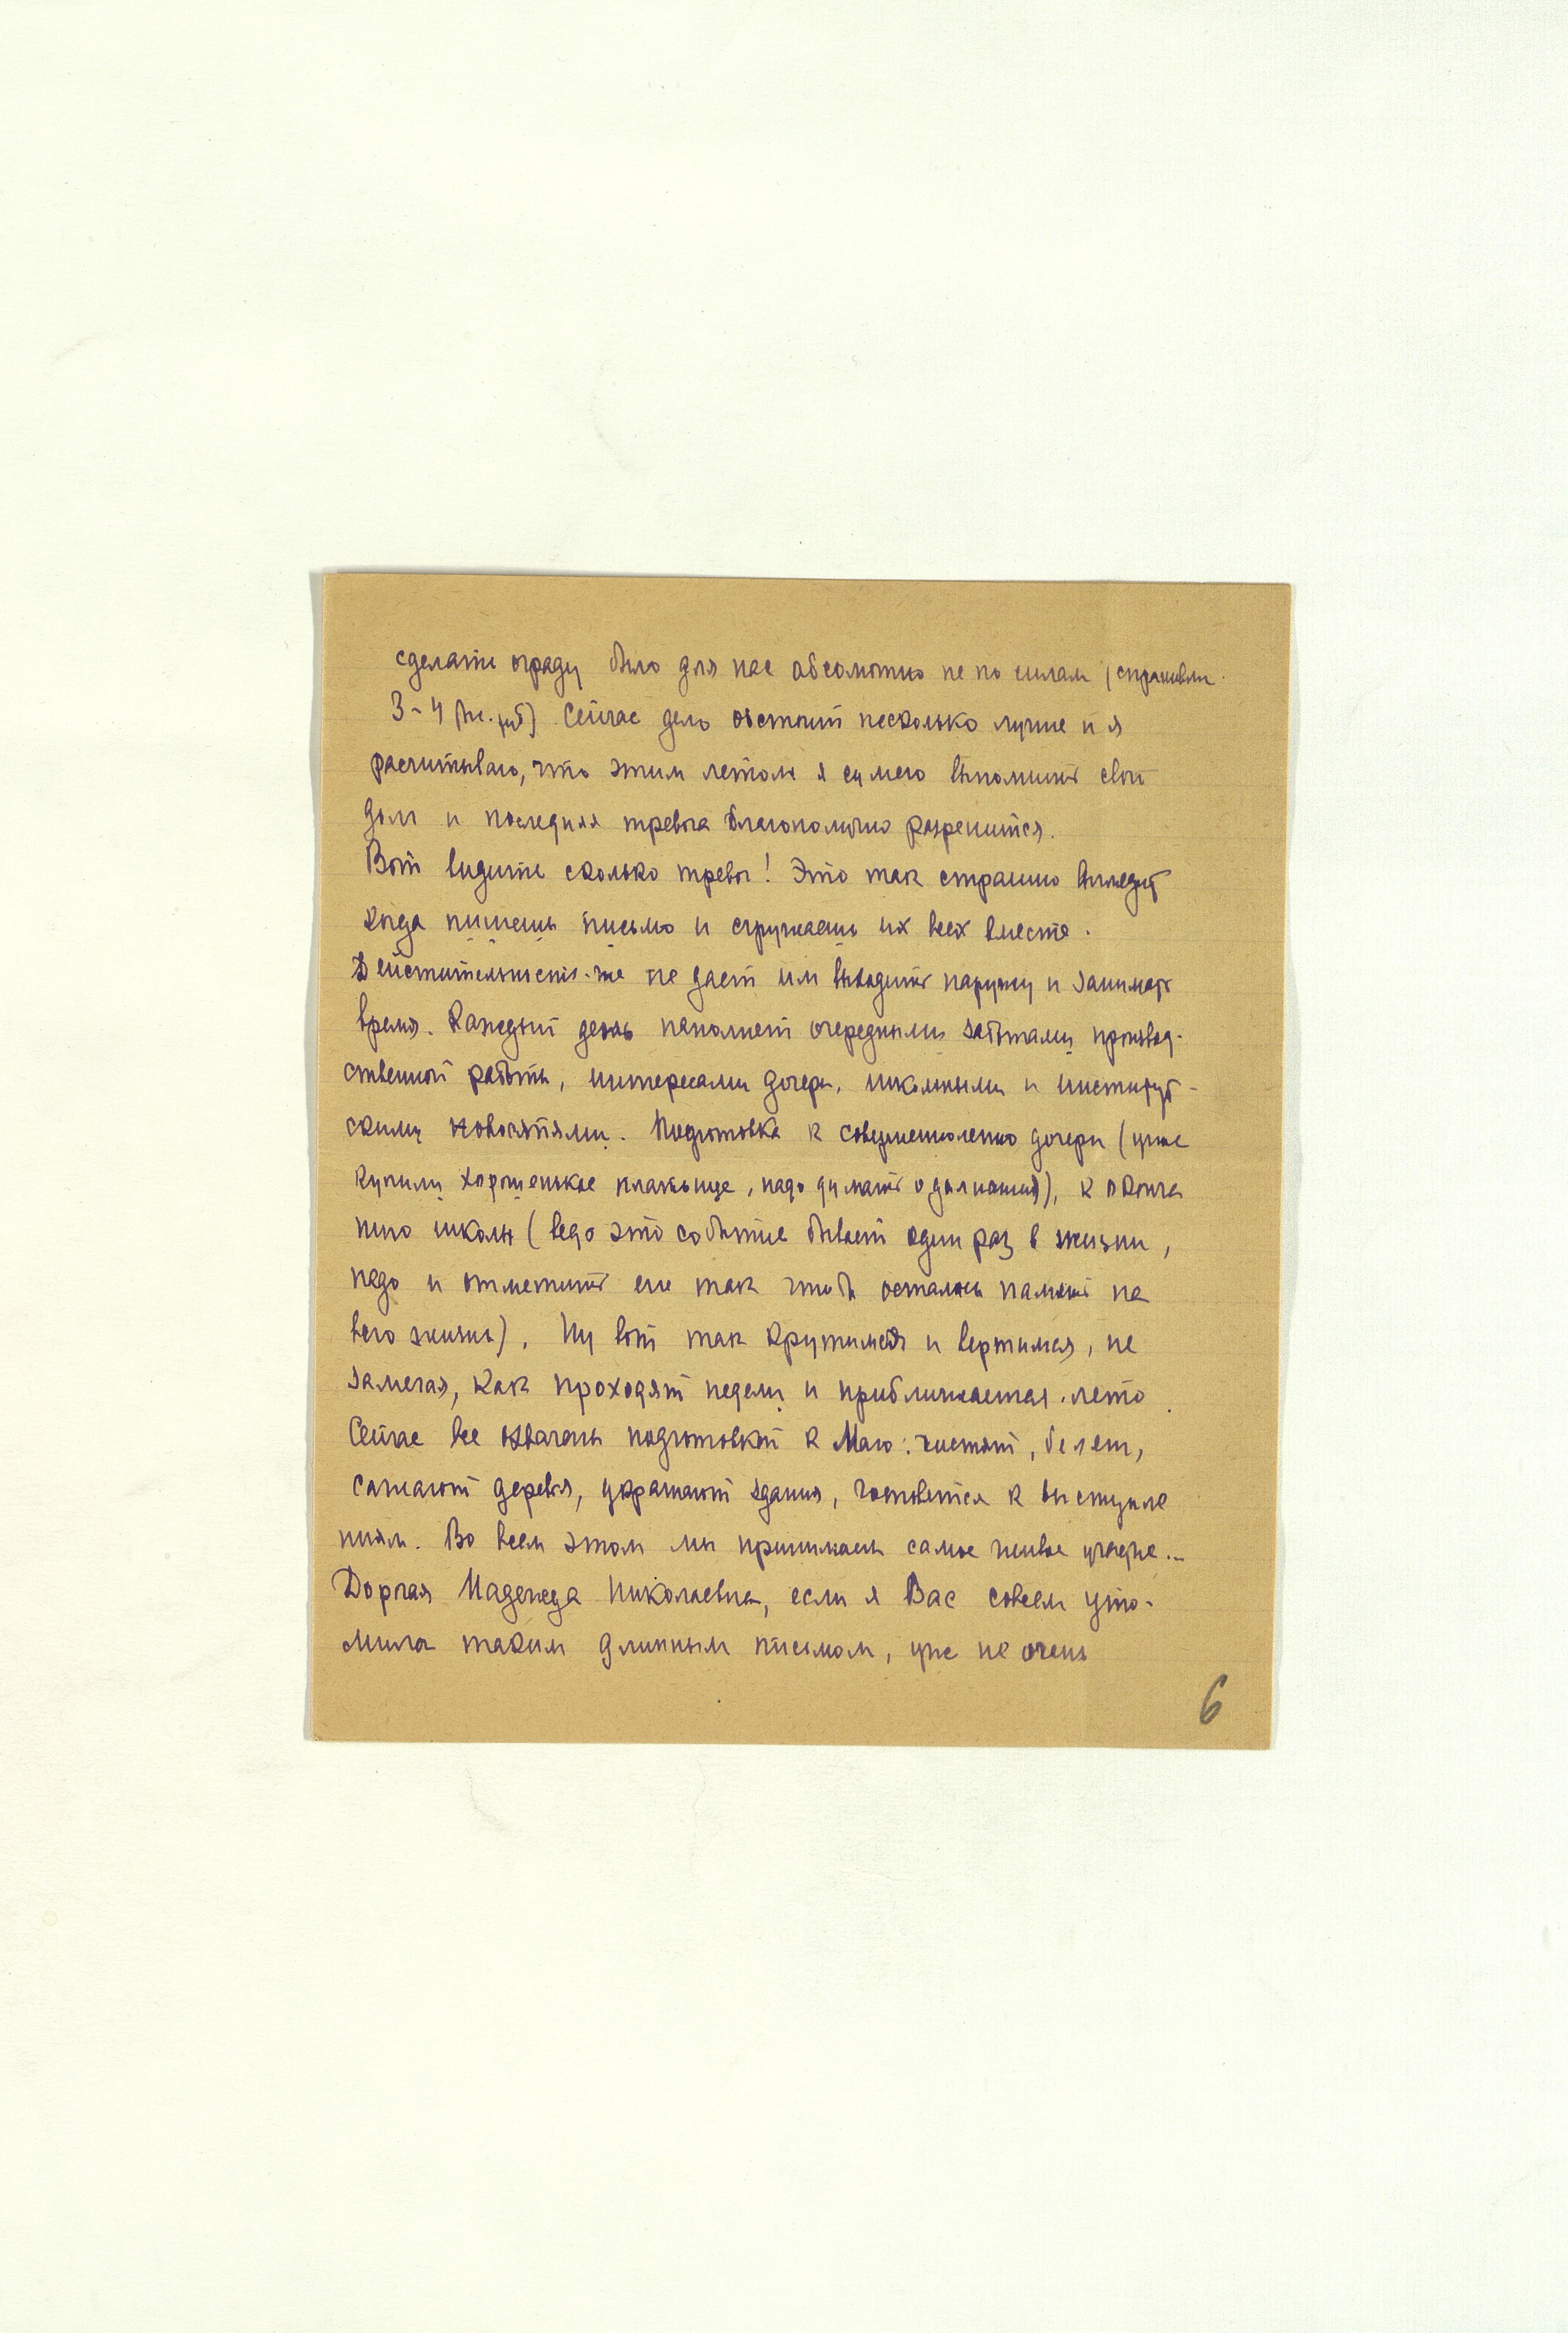 сделать ограду было для нас абсолютно не по силам (спрашивали
3-4 тыс. руб). Сейчас дело обстоит несколько лучше и я
расчитываю, что этим летом я сумею выполнить свой
долг и последняя тревога благополучно разрешится.
Вот видите сколько тревог! Это так страшно выглядит
когда пишешь письмо и сгружаешь их всех вместе.
Действительность-же не дает им выходить наружу и занимать
время. Каждый день наполнен очередными заботами производ-
ственной работы, интересами дочери, школьными и институт-
скими новостями. Подготовка к совершенолетию дочери (уже
купили хорошенькое платьице, надо думать о дальнейшем), к оконча
нию школы (ведь это событие бывает один раз в жизни,
надо и отметить его так чтобы осталась память на
всю жизнь). Ну вот так крутимся и вертимся, не
замечая, как проходят недели и приближается лето.
Сейчас все охвачены подготовкой к Маю: чистят, белят,
сажают деревья, украшают здания, готовятся к выступле
ниям. Во всем этом мы принимаем самое живое участие...
Дорогая Надежда Николаевна, если я Вас совсем уто-
мила таким длинным письмом, уже не очень
6